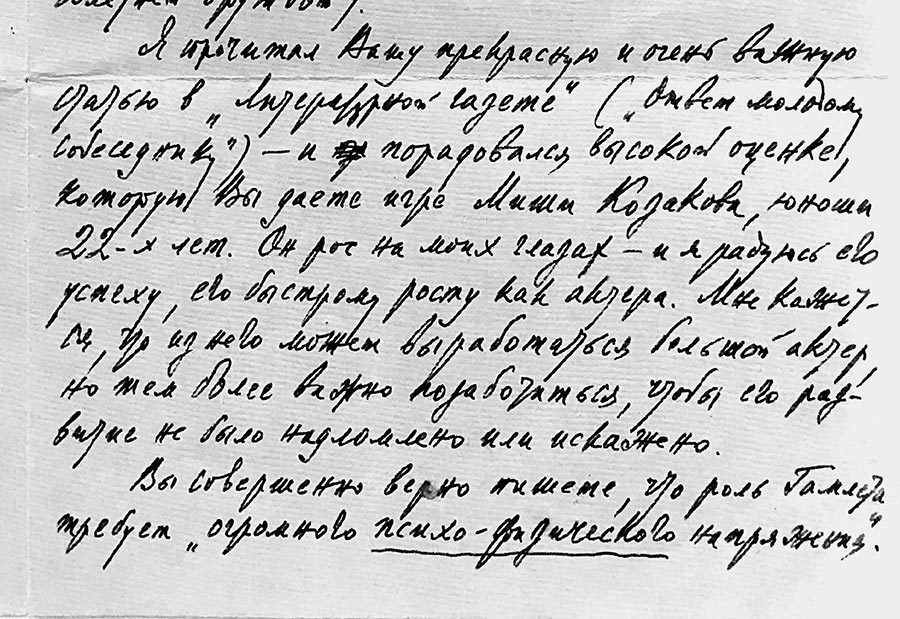 Я прочитал Вашу прекрасную и очень важную
статью в „Литературной газете“ („Ответ молодому
собеседнику“) – и порадовался высокой оценке,
которую Вы даете игре Миши Козакова, юноши
22-х лет. Он рос на моих глазах – и я радуюсь его
успеху, его быстрому росту как актера. Мне кажет-
ся, что из него может выработаться большой актер,
но тем более важно позаботиться, чтобы его раз-
витие не было надломлено или искажено.
Вы совершенно верно пишете, что роль Гамлета
требует „огромного психо-физического напряжения“.